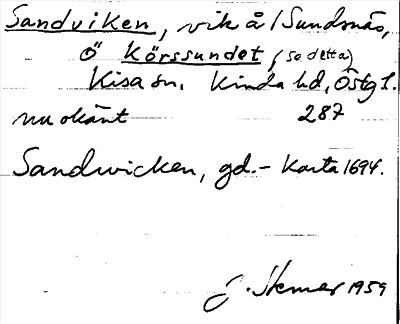 Sandviken, vik å / Sundsnäs,
ö Körssundet, (se detta)
Kisa sn. Kinda hd, Östg l.
nu okänt 287
Sandwicken, gd. - Karta 1694.
1959